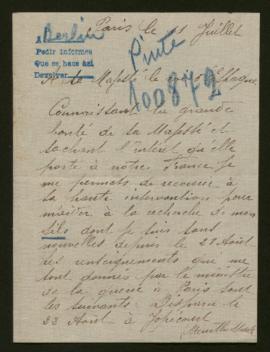 Paris le 11 Juillet
a Berlin
Pedir informes
Que se hace así
Devolver
Pinte
100872
A sa Majesté le roi d'Espagne
Connaissant la grande
bonté de sa Majesté et
sachant l'intérêt qu'elle
porte à notre France je
me permets de recourir à
sa haute intervention pour
m'aider à la recherche de mon
fils dont je suis sans
nouvelles depuis le 21 Août
les renseignements que me
sont donnés par le ministère
de la guerre à Paris sont
les suivants: Disparu le
22 Août à